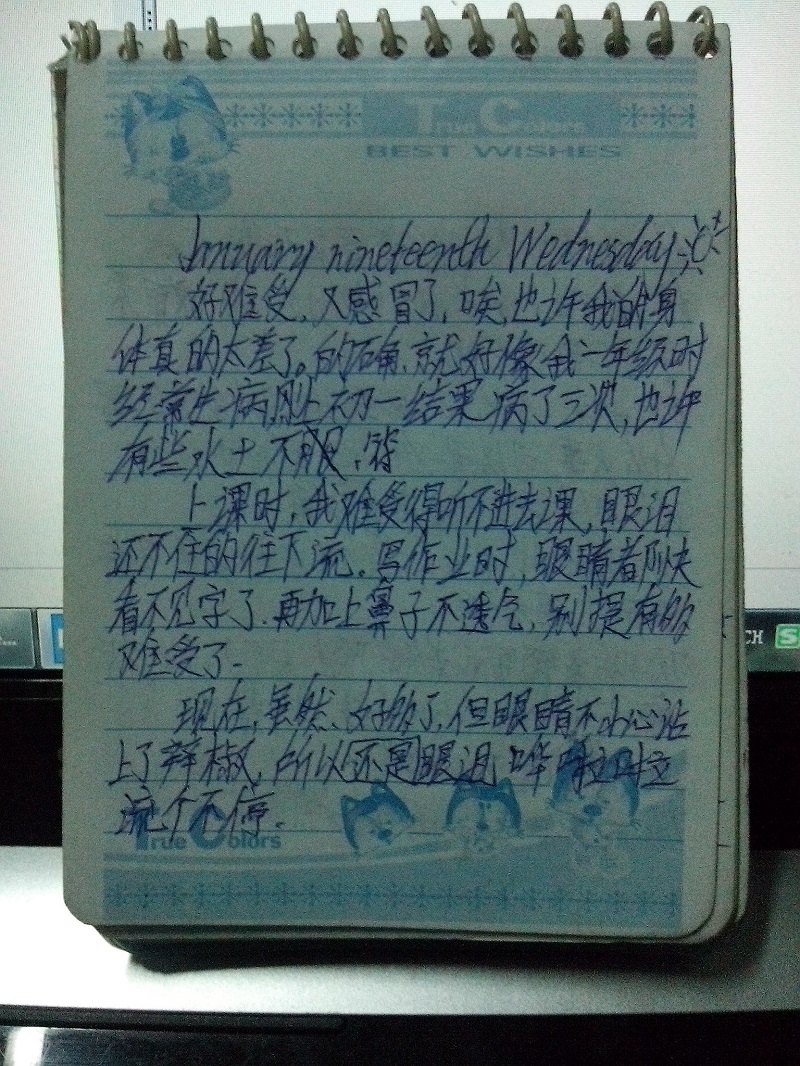 True Colors
BEST WISHES
January nineteenth Wednesday
好难受,又感冒了,唉,也许我的身
体真的太差了。的确,就好像我一年级时
经常生病,刚上初一结果病了三次,也许
有些水土不服.
上课时,我难受得听不进去课,眼泪
还不住的往下流。写作业时,眼睛看
看不见字了.再加上鼻子不透气,别提有多
难受了.
现在,虽然,好多了,但眼睛不小心沾
上了辣椒,所以还是眼泪哗啦啦
流个不停.
True Colors
CH
S